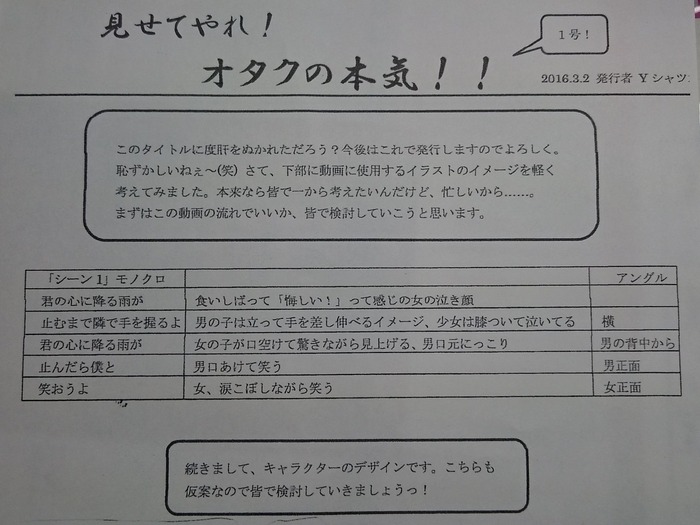 見せてやれ！
オタクの本気！！
1号！
2016.3.2 発行者 Yシャツ
このタイトルに度肝をぬかれただろう？今後はこれで発行しますのでよろしく。
恥ずかしいねぇ～(笑) さて、下部に動画に使用するイラストのイメージを軽く
考えてみました。本来なら皆で一から考えたいんだけど、忙しいから……。
まずはこの動画の流れでいいか、皆で検討していこうと思います。
「シーン1」モノクロ アングル
君の心に降る雨が 食いしばって「悔しい！」って感じの女の泣き顔
止むまで隣で手を握るよ 男の子は立って手を差し伸べるイメージ、少女は膝ついて泣いてる 横
君の心に降る雨が 女の子が口空けて驚きながら見上げる、男口元にっこり 男の背中から
止んだら僕と 男口あけて笑う 男正面
笑おうよ 女、涙こぼしながら笑う 女正面
続きまして、キャラクターのデザインです。こちらも
仮案なので皆で検討していきましょうっ！